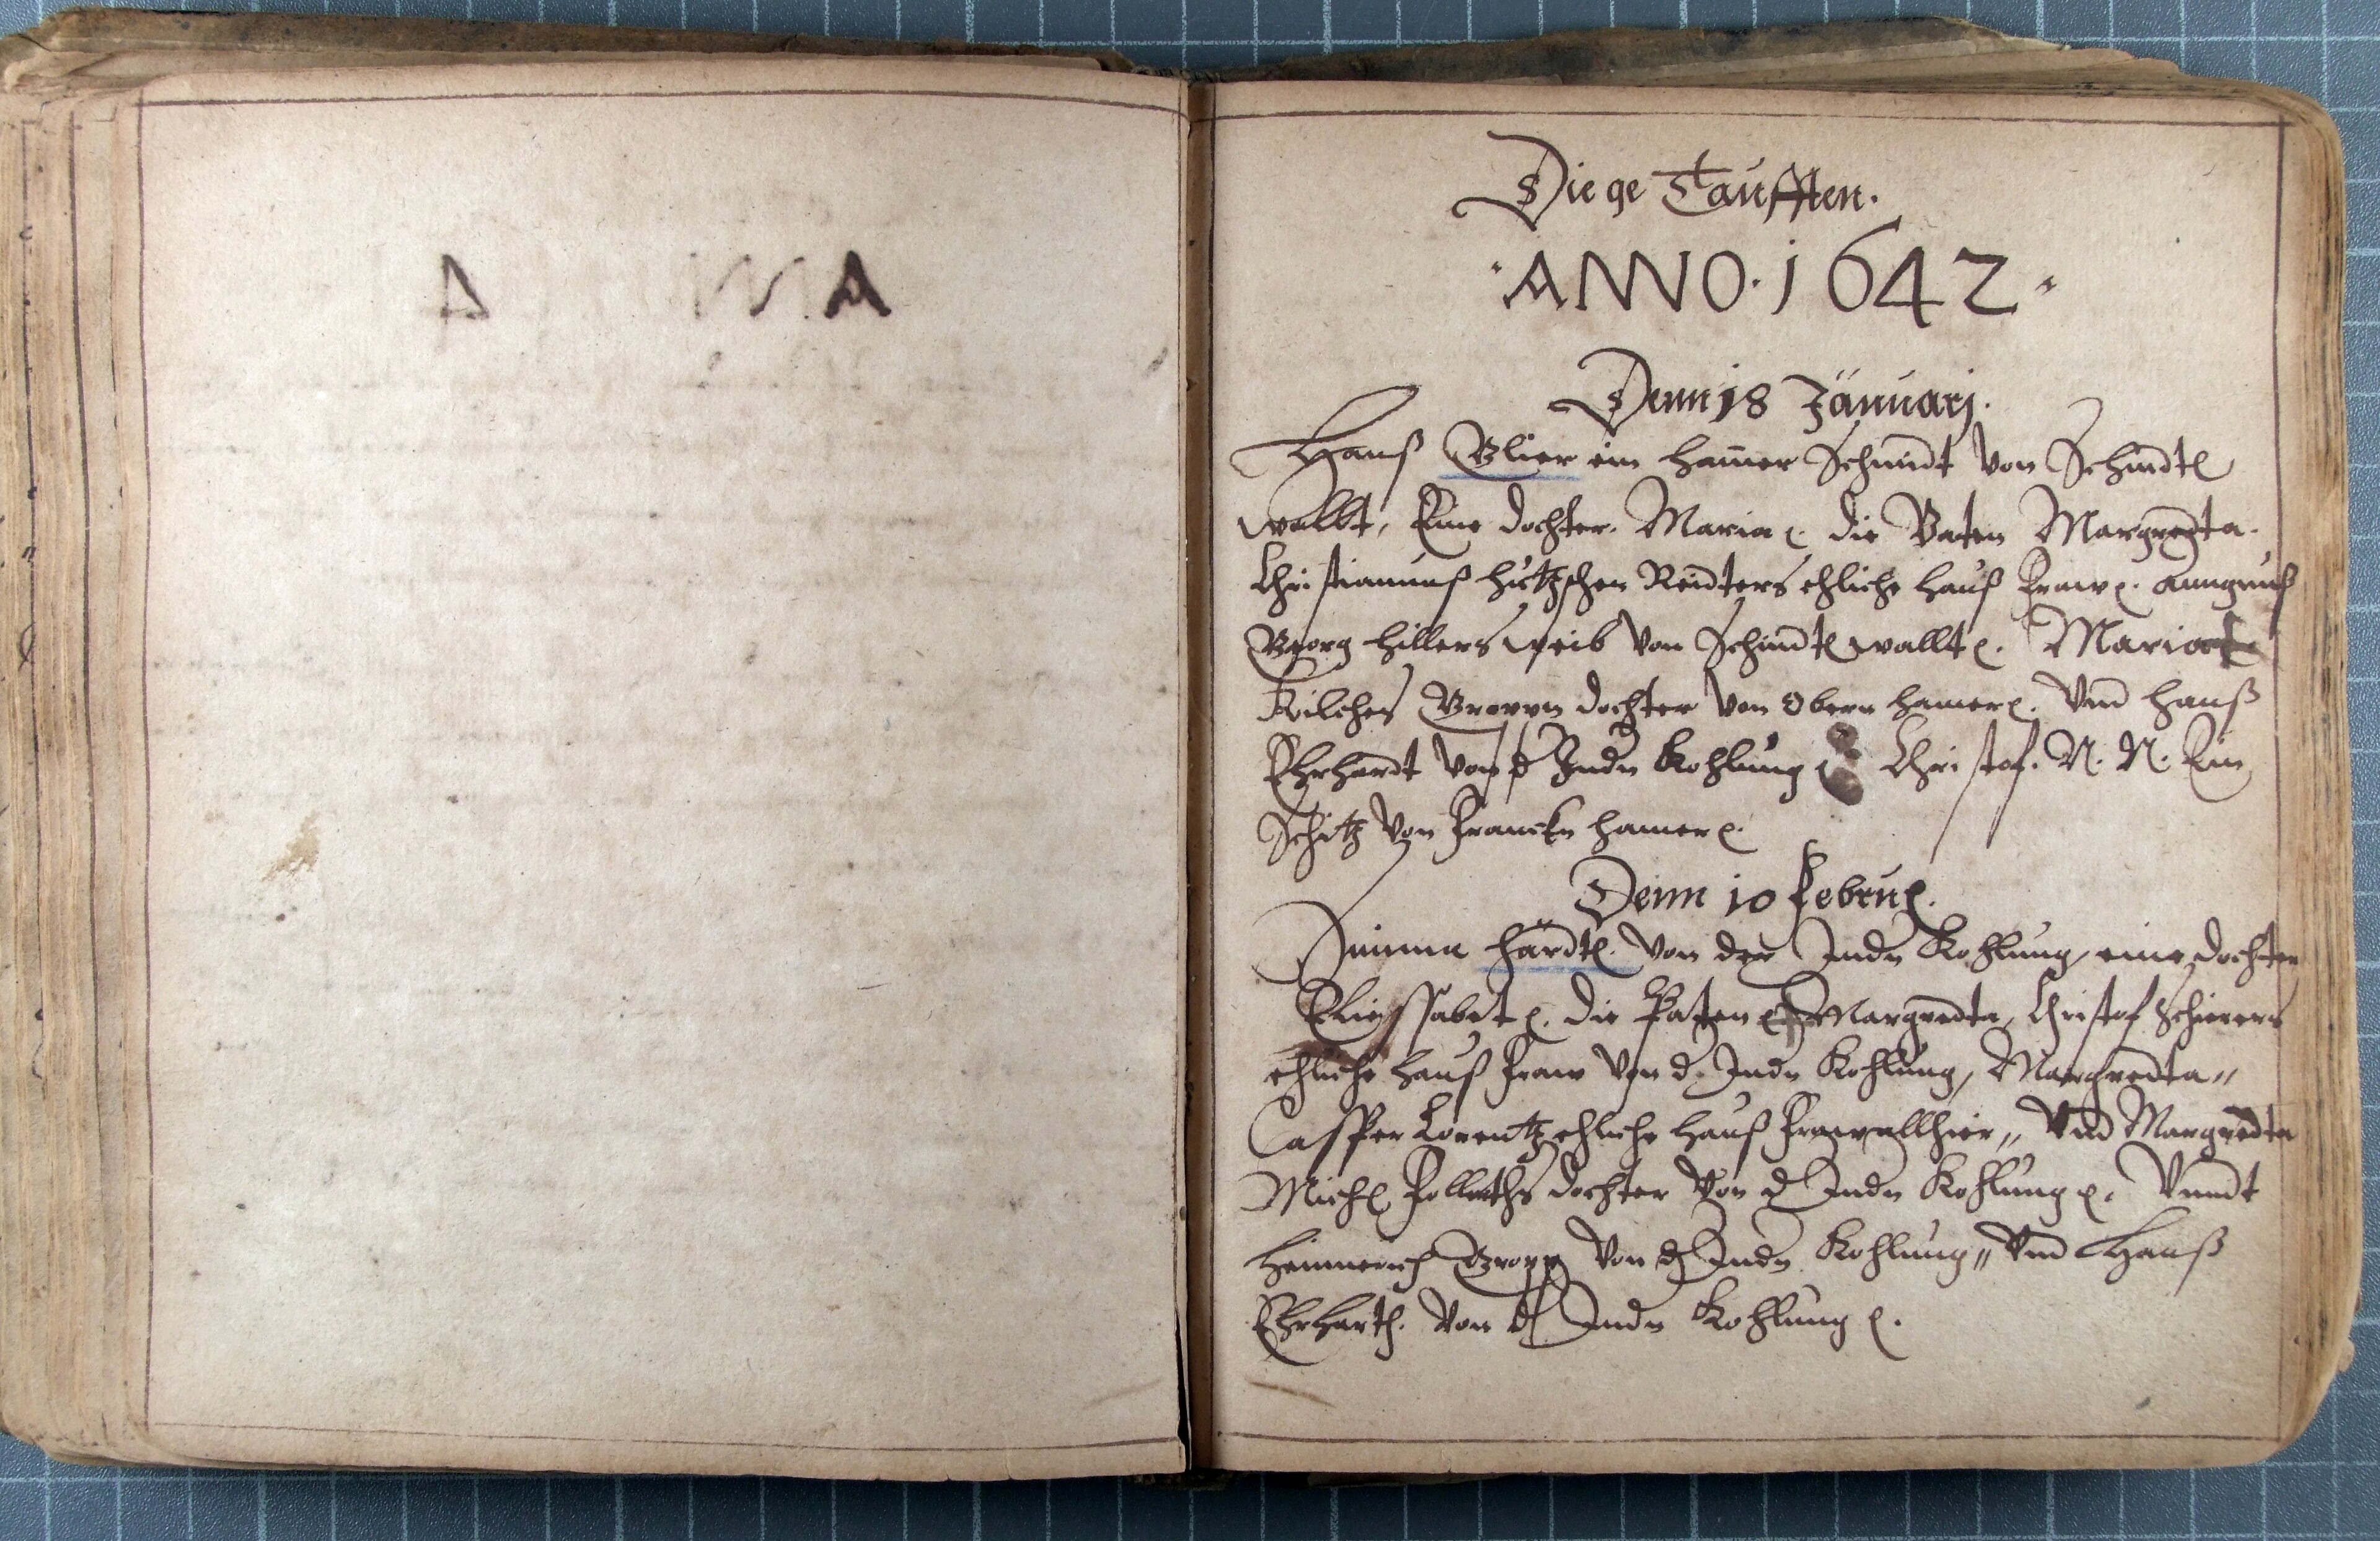 Die ge Taufften.
ANNO · 1642 ·
Denn 18 Januarj.
Hanß Blier ein hamer Schmidt von Schmidtl
wallt, Eine dochter. Maria. die Paten Margredta.
Christiannuß Reidters ehliche hauß Fraw.
Georg hillers weib von Schmidtl wallt. Maria
dochter von Obern hamer. Vnd Hanß
Ehrhardt von d Indn Kohlung Christof. N. N. Ein
Schitz von Franckn hamer.
Denn 10 Febru.
hardtl. von der Indn Kohlung, eine dochter
Eliessabet. die Paten Margredta, Christof Schirers
ehliche hauß Fraw von d. Indn Kohlung, Margredta „
Casper Lorentz ehliche hauß Fraw allhier „ Vnd Margredta
Michl dochter von d Indn Kohlung. Vnndt
Heinnerich von d Indn Kohlung „ Vnd Hanß
Ehrhartl. von d Indn Kohlung.